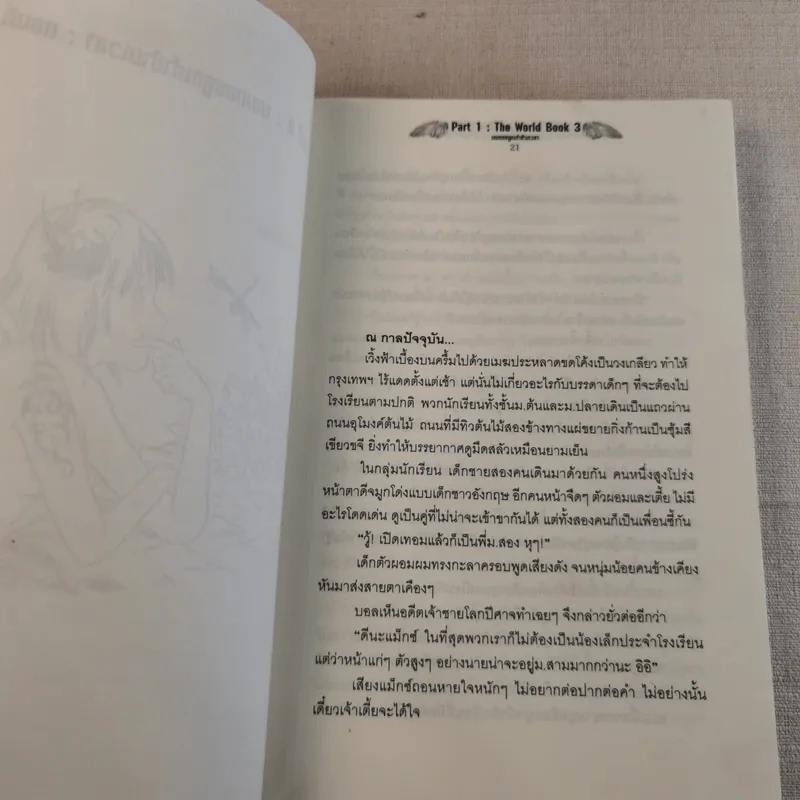 Part 1 : The World Book 3
21
ณ กาลปัจจุบัน...
เวิ้งฟ้าเบื้องบนครึ้มไปด้วยเมฆประหลาดขดโค้งเป็นวงเกลียว ทำให้
กรุงเทพฯ ไร้แดดตั้งแต่เช้า แต่นั่นไม่เกี่ยวอะไรกับบรรดาเด็กๆ ที่จะต้องไป
โรงเรียนตามปกติ พวกนักเรียนทั้งชั้นม.ต้นและม.ปลายเดินเป็นแถวผ่าน
ถนนอุโมงค์ต้นไม้ ถนนที่มีทิวต้นไม้สองข้างทางแผ่ขยายกิ่งก้านเป็นซุ้มสี
เขียวขจี ยิ่งทำให้บรรยากาศดูมืดสลัวเหมือนยามเย็น
ในกลุ่มนักเรียน เด็กชายสองคนเดินมาด้วยกัน คนหนึ่งสูงโปร่ง
หน้าตาดีจมูกโด่งแบบเด็กชาวอังกฤษ อีกคนหน้าจืดๆ ตัวผอมและเตี้ย ไม่มี
อะไรโดดเด่น ดูเป็นคู่ที่ไม่น่าจะเข้าขากันได้ แต่ทั้งสองคนก็เป็นเพื่อนซี้กัน
“วู้! เปิดเทอมแล้วก็เป็นพี่ม.สอง หุๆ!”
เด็กตัวผอมผมทรงกะลาครอบพูดเสียงดัง จนหนุ่มน้อยคนข้างเคียง
หันมาส่งสายตาเคืองๆ
บอลเห็นอดีตเจ้าชายโลกปีศาจทำเฉยๆ จึงกล่าวยั่วต่ออีกว่า
“ดีนะแม็กซ์ ในที่สุดพวกเราก็ไม่ต้องเป็นน้องเล็กประจำโรงเรียน
แต่ว่าหน้าแก่ๆ ตัวสูงๆ อย่างนายน่าจะอยู่ม.สามมากกว่านะ อิอิ”
เสียงแม็กซ์ถอนหายใจหนักๆ ไม่อยากต่อปากต่อคำ ไม่อย่างนั้น
เดี๋ยวเจ้าเตี้ยจะได้ใจ